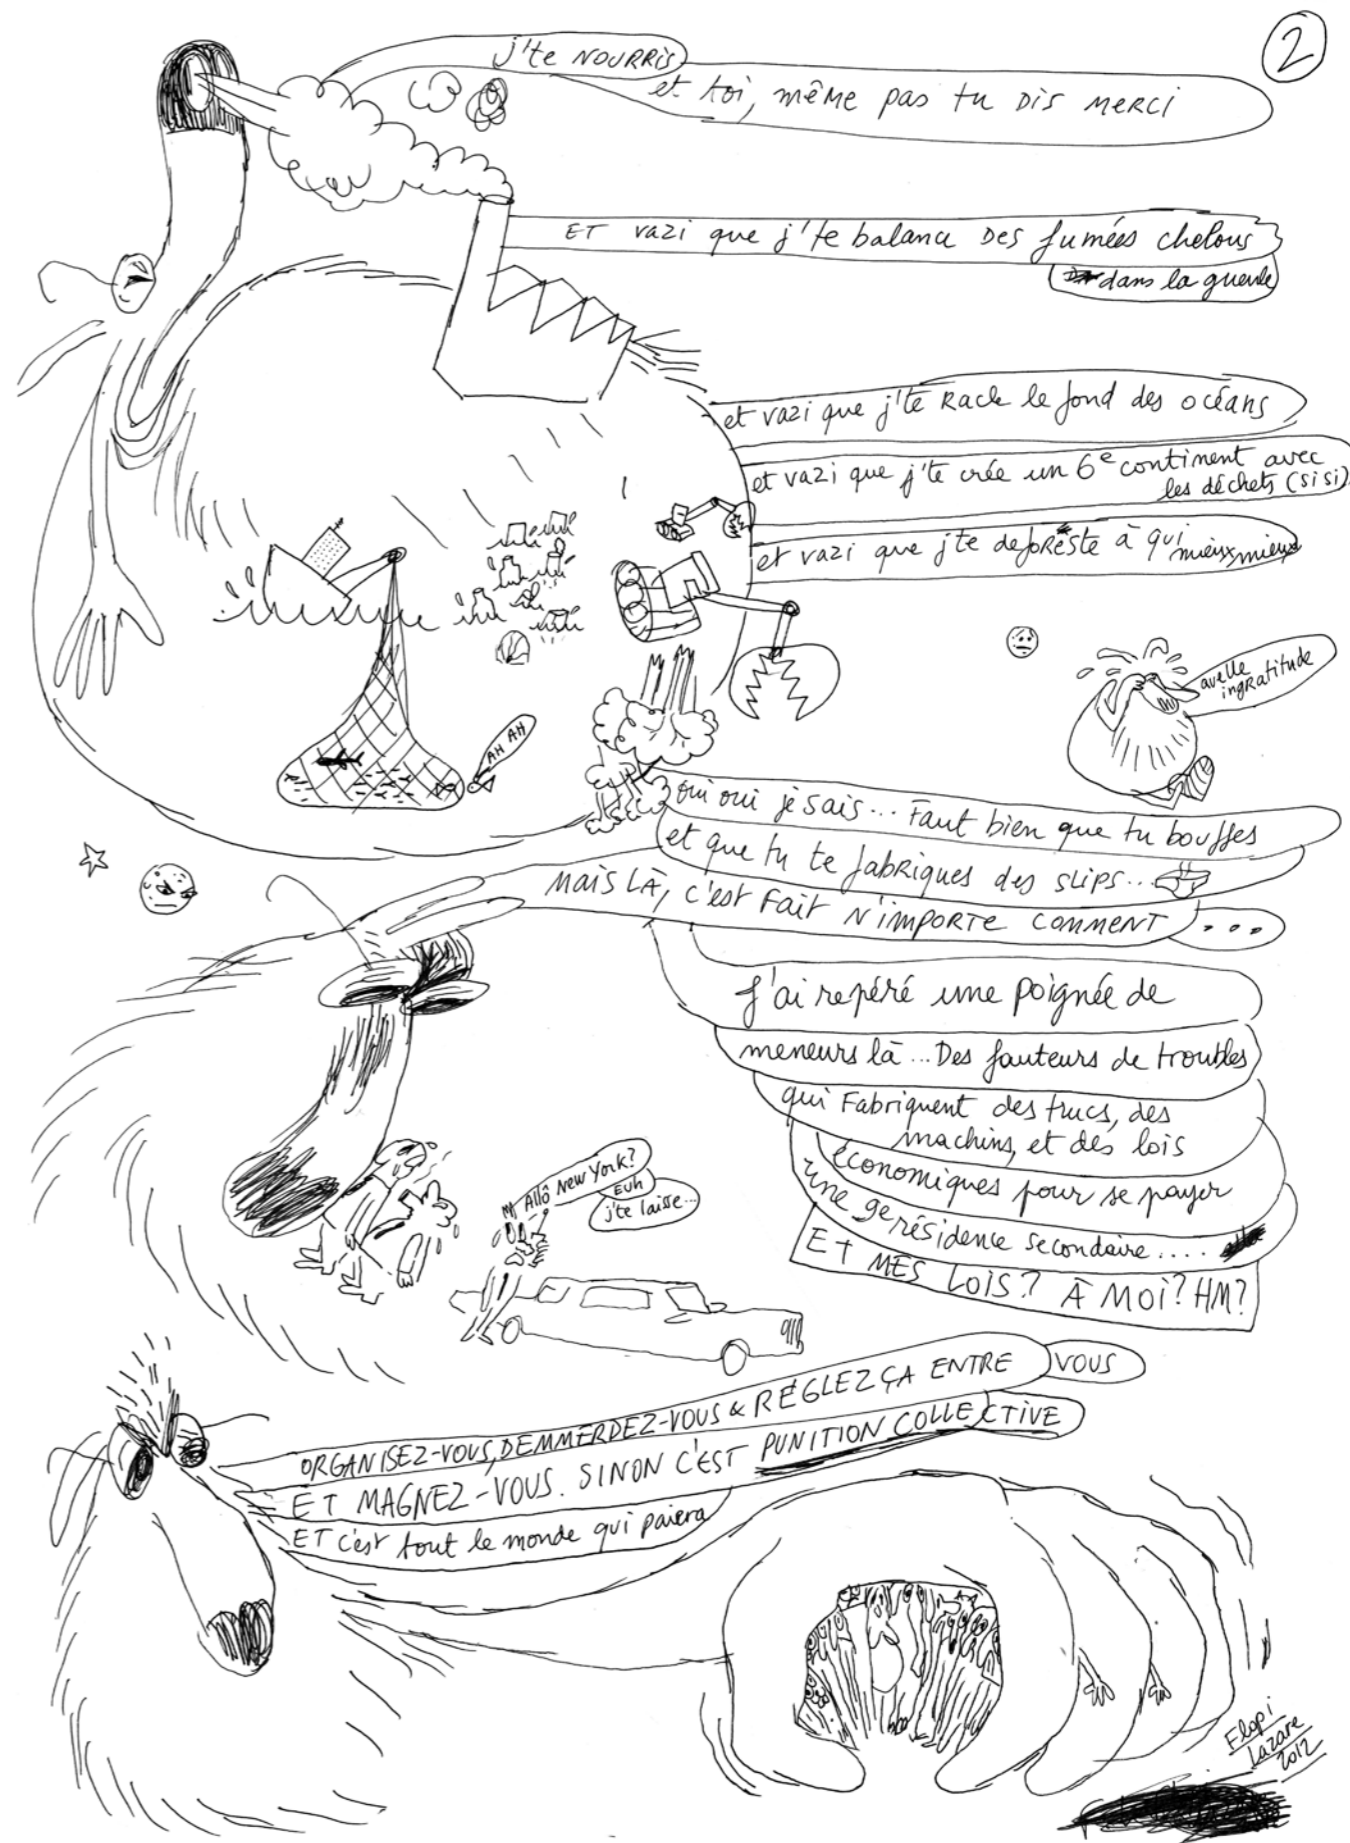 2
j'te NOURRIS
et toi, même pas tu DIS MERCI
ET vazi que j'te balance DES fumées chelous
dans la gueule
et vazi que j'te RACLE le fond des océans
et vazi que j'te crée un 6e continent avec
les déchets (si si).
et vazi que j'te deforeste à qui
mieux mieux
AH AH
avelle
ingratitude
oui oui je sais... Faut bien que tu bouffes
et que tu te fabriques des slips...
MAIS LÀ, c'est FAIT N'IMPORTE COMMENT
...
J'ai repéré une poignée de
meneurs là... Des fauteurs de troubles
qui Fabriquent des trucs, des
machins, et des lois
économiques pour se payer
une 9e résidence secondaire....
ET MES LOIS? À MOI? HM?
Allô New York?
EUH
j'te laisse...
ORGANISEZ-VOUS, DEMMERDEZ-VOUS & RÉGLEZ ÇA ENTRE VOUS
ET MAGNEZ-VOUS. SINON C'EST PUNITION COLLECTIVE
ET C'est tout le monde qui paiera
Flopi
Lazare
2012